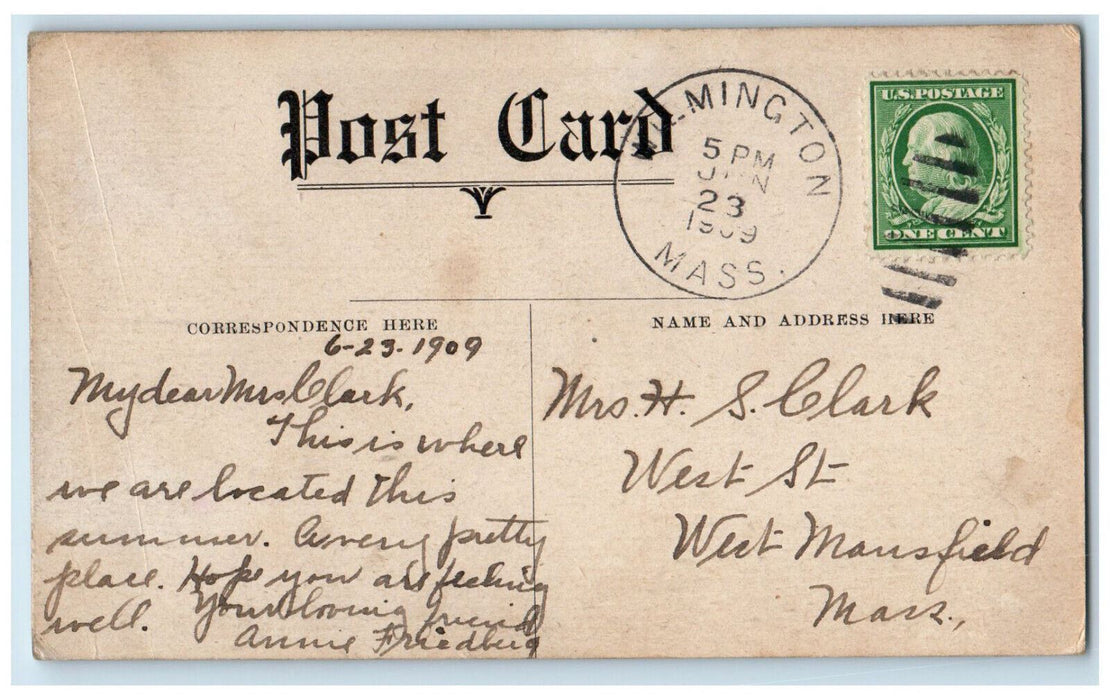 Post Card
WILMINGTON
5 PM
JUN
23
1909
MASS.
U.S. POSTAGE
ONE CENT
CORRESPONDENCE HERE
6-23-1909
My dear Mrs Clark,
This is where
we are located this
summer. A very pretty
place. Hope you are feeling
well. Your loving friend
Annie Friedberg
NAME AND ADDRESS HERE
Mrs. H. S. Clark
West St
West Mansfield
Mass.,